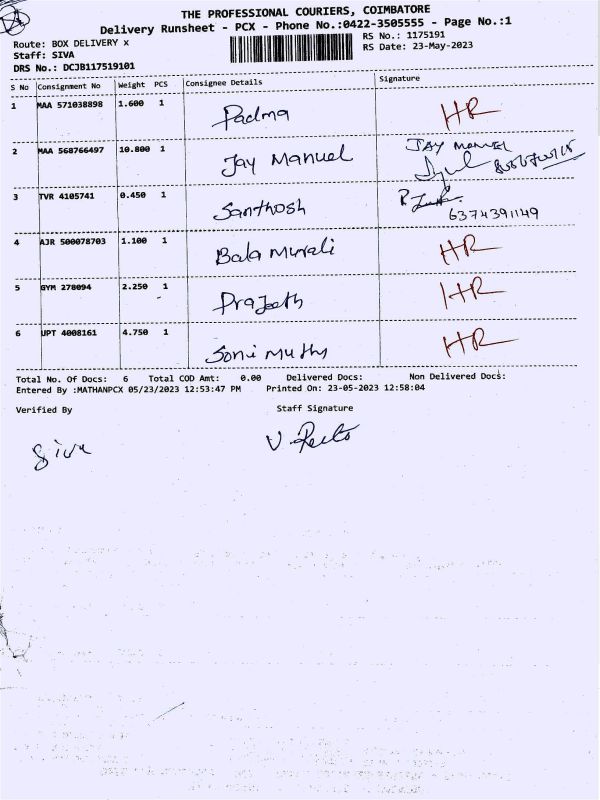 THE PROFESSIONAL COURIERS, COIMBATORE
Delivery Runsheet - PCX - Phone No.:0422-3505555 - Page No.:1
Route: BOX DELIVERY x
RS No.: 1175191
Staff: SIVA
RS Date: 23-May-2023
DRS No.: DCJB117519101
S No Consignment No Weight PCS Consignee Details Signature
1 MAA 571038898 1.600 1 Padma HR
2 MAA 568766497 10.800 1 Jay Manuel JAY MANUEL
3 TVR 4105741 0.450 1 Santhosh
6374391149
4 AJR 500078703 1.100 1 Bala Murali HR
5 GYM 278094 2.250 1 Prajeeth HR
6 UPT 4008161 4.750 1 Soni Muthy HR
Total No. Of Docs: 6 Total COD Amt: 0.00 Delivered Docs: Non Delivered Docs:
Entered By :MATHANPCX 05/23/2023 12:53:47 PM Printed On: 23-05-2023 12:58:04
Verified By Staff Signature
Siva